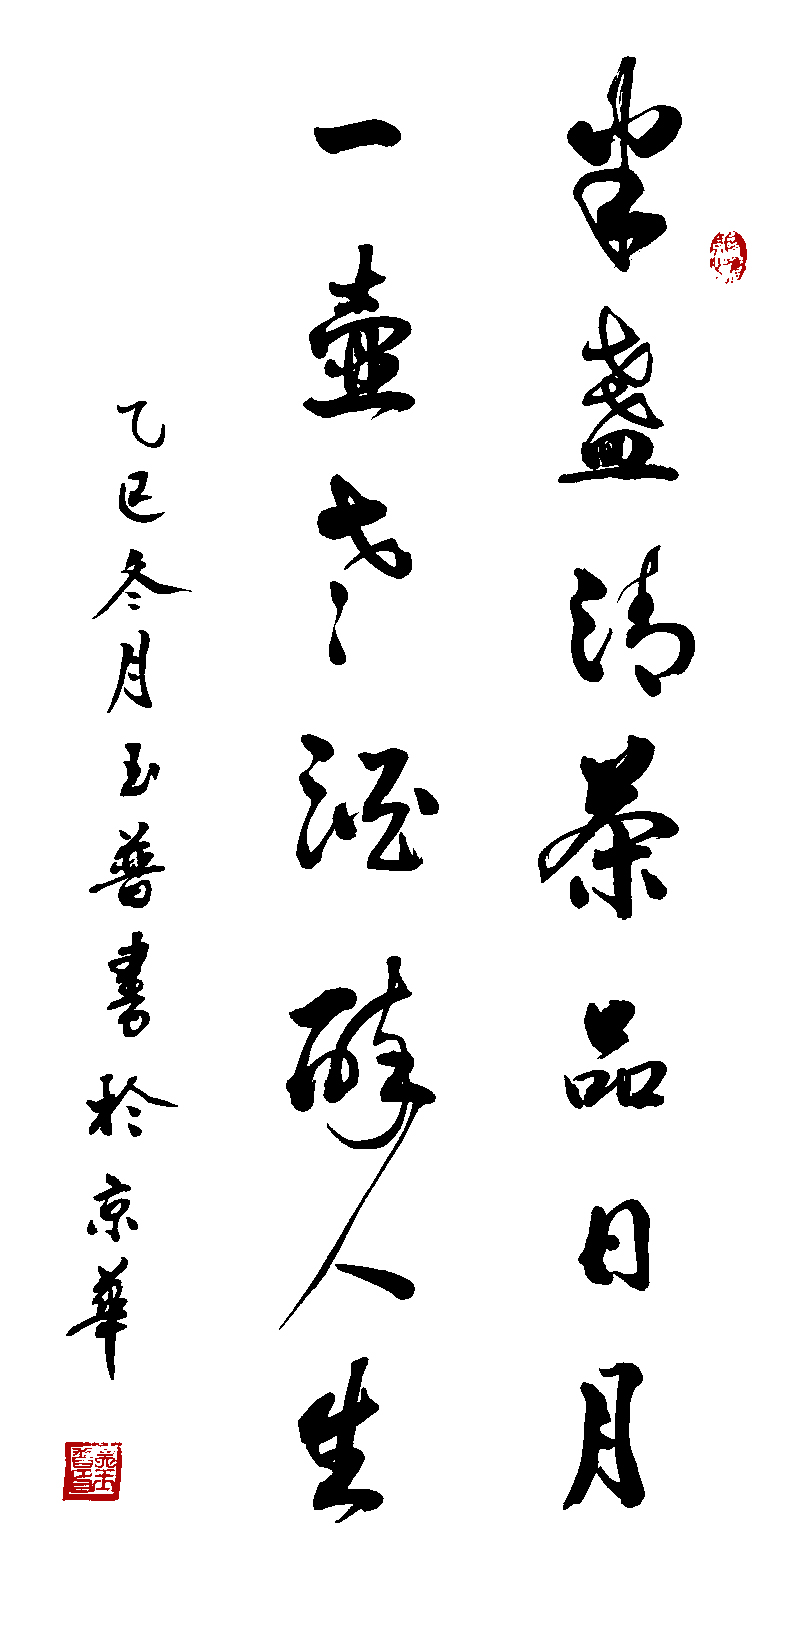 半盏清茶品日月
一壶老酒醉人生
乙巳冬月玉普书於京華